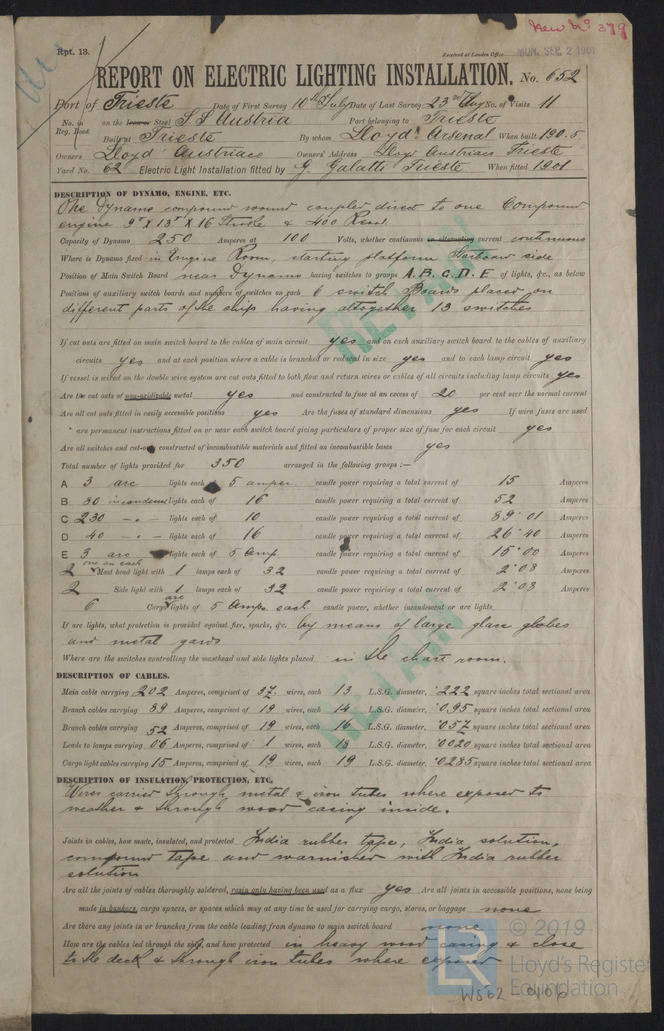 New No 379
Rpt. 13.
Received at London Office
MON. SEP. 2 1901
REPORT ON ELECTRIC LIGHTING INSTALLATION. No. 652
Port of Trieste Date of First Survey 10th July Date of Last Survey 23rd Aug No. of Visits 11
No. in Reg. Book on the Iron or Steel S S Austria Port belonging to Trieste
Built at Trieste By whom Lloyd's Arsenal When built 190.5
Owners Lloyd Austriaco Owners' Address Lloyd Austriaco Trieste
Yard No. 62 Electric Light Installation fitted by G Galatti Trieste When fitted 1901
DESCRIPTION OF DYNAMO, ENGINE, ETC.
One Dynamo compound wound coupled direct to one Compound
engine 9" X 13" X 16 Stroke & 400 Revs.
Capacity of Dynamo 250 Amperes at 100 Volts, whether continuous or alternating current continuous
Where is Dynamo fixed in Engine Room, starting platform Starboard side
Position of Main Switch Board near Dynamo having switches to groups A. B. C. D. E of lights, &c., as below
Positions of auxiliary switch boards and numbers of switches on each 6 switch Boards placed on
different parts of the ship having altogether 13 switches
If cut outs are fitted on main switch board to the cables of main circuit yes and on each auxiliary switch board to the cables of auxiliary
circuits yes and at each position where a cable is branched or reduced in size yes and to each lamp circuit yes
If vessel is wired on the double wire system are cut outs fitted to both flow and return wires or cables of all circuits including lamp circuits yes
Are the cut outs of non-oxidizable metal yes and constructed to fuse at an excess of 20 per cent over the normal current
Are all cut outs fitted in easily accessible positions yes Are the fuses of standard dimensions yes If wire fuses are used
are permanent instructions fitted on or near each switch board giving particulars of proper size of fuse for each circuit yes
Are all switches and cut-outs constructed of incombustible materials and fitted on incombustible bases yes
Total number of lights provided for 350 arranged in the following groups :—
A 3 arc lights each of 5 amper candle power requiring a total current of 15 Amperes
B 80 incandescen lights each of 16 candle power requiring a total current of 52 Amperes
C 230 - " - lights each of 10 candle power requiring a total current of 89.01 Amperes
D 40 - " - lights each of 16 candle power requiring a total current of 26.40 Amperes
E 3 arc lights each of 5 Amp candle power requiring a total current of 15.00 Amperes
one on each
2 Mast head light with 1 lamps each of 32 candle power requiring a total current of 2.08 Amperes
2 Side light with 1 lamps each of 32 candle power requiring a total current of 2.08 Amperes
6 Cargo arc lights of 5 Amps each candle power, whether incandescent or arc lights
If arc lights, what protection is provided against fire, sparks, &c. by means of large glass globes
and metal gards
Where are the switches controlling the masthead and side lights placed in the chart room.
DESCRIPTION OF CABLES.
Main cable carrying 202 Amperes, comprised of 37 wires, each 13 L.S.G. diameter, .222 square inches total sectional area
Branch cables carrying 89 Amperes, comprised of 19 wires, each 14 L.S.G. diameter, .095 square inches total sectional area
Branch cables carrying 52 Amperes, comprised of 19 wires, each 16 L.S.G. diameter, .057 square inches total sectional area
Leads to lamps carrying 06 Amperes, comprised of 1 wires, each 18 L.S.G. diameter, .0020 square inches total sectional area
Cargo light cables carrying 15 Amperes, comprised of 19 wires, each 19 L.S.G. diameter, .0235 square inches total sectional area
DESCRIPTION OF INSULATION, PROTECTION, ETC.
Wires carried through metal & iron tubes where exposed to
weather & through wood casing inside.
Joints in cables, how made, insulated, and protected India rubber tape, India solution,
compound tape and warnished with India rubber
solution
Are all the joints of cables thoroughly soldered, resin only having been used as a flux yes Are all joints in accessible positions, none being
made in bunkers, cargo spaces, or spaces which may at any time be used for carrying cargo, stores, or baggage none
Are there any joints in or branches from the cable leading from dynamo to main switch board none
How are the cables led through the ship, and how protected in heavy wood casing & close
to the deck & through iron tubes where exposed
© 2019
Lloyd's Register
Foundation
W562-0406